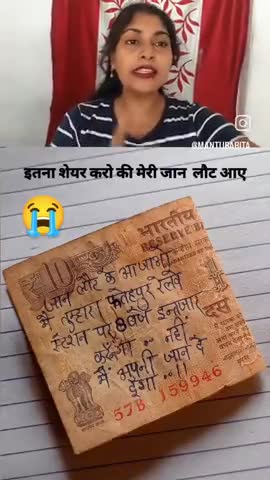 @MANTURABITA
इतना शेयर करो की मेरी जान लौट आए
10
भारतीय
RESERVE B
जान लौट के आजाओ
मैं तुम्हारा फतेहपुर रेलवे
स्टेशन पर 8 बजे इन्तजार
करूँगा .. नहीं
मैं अपनी जान दे
दूंगा ..!!
दस
57B 159946